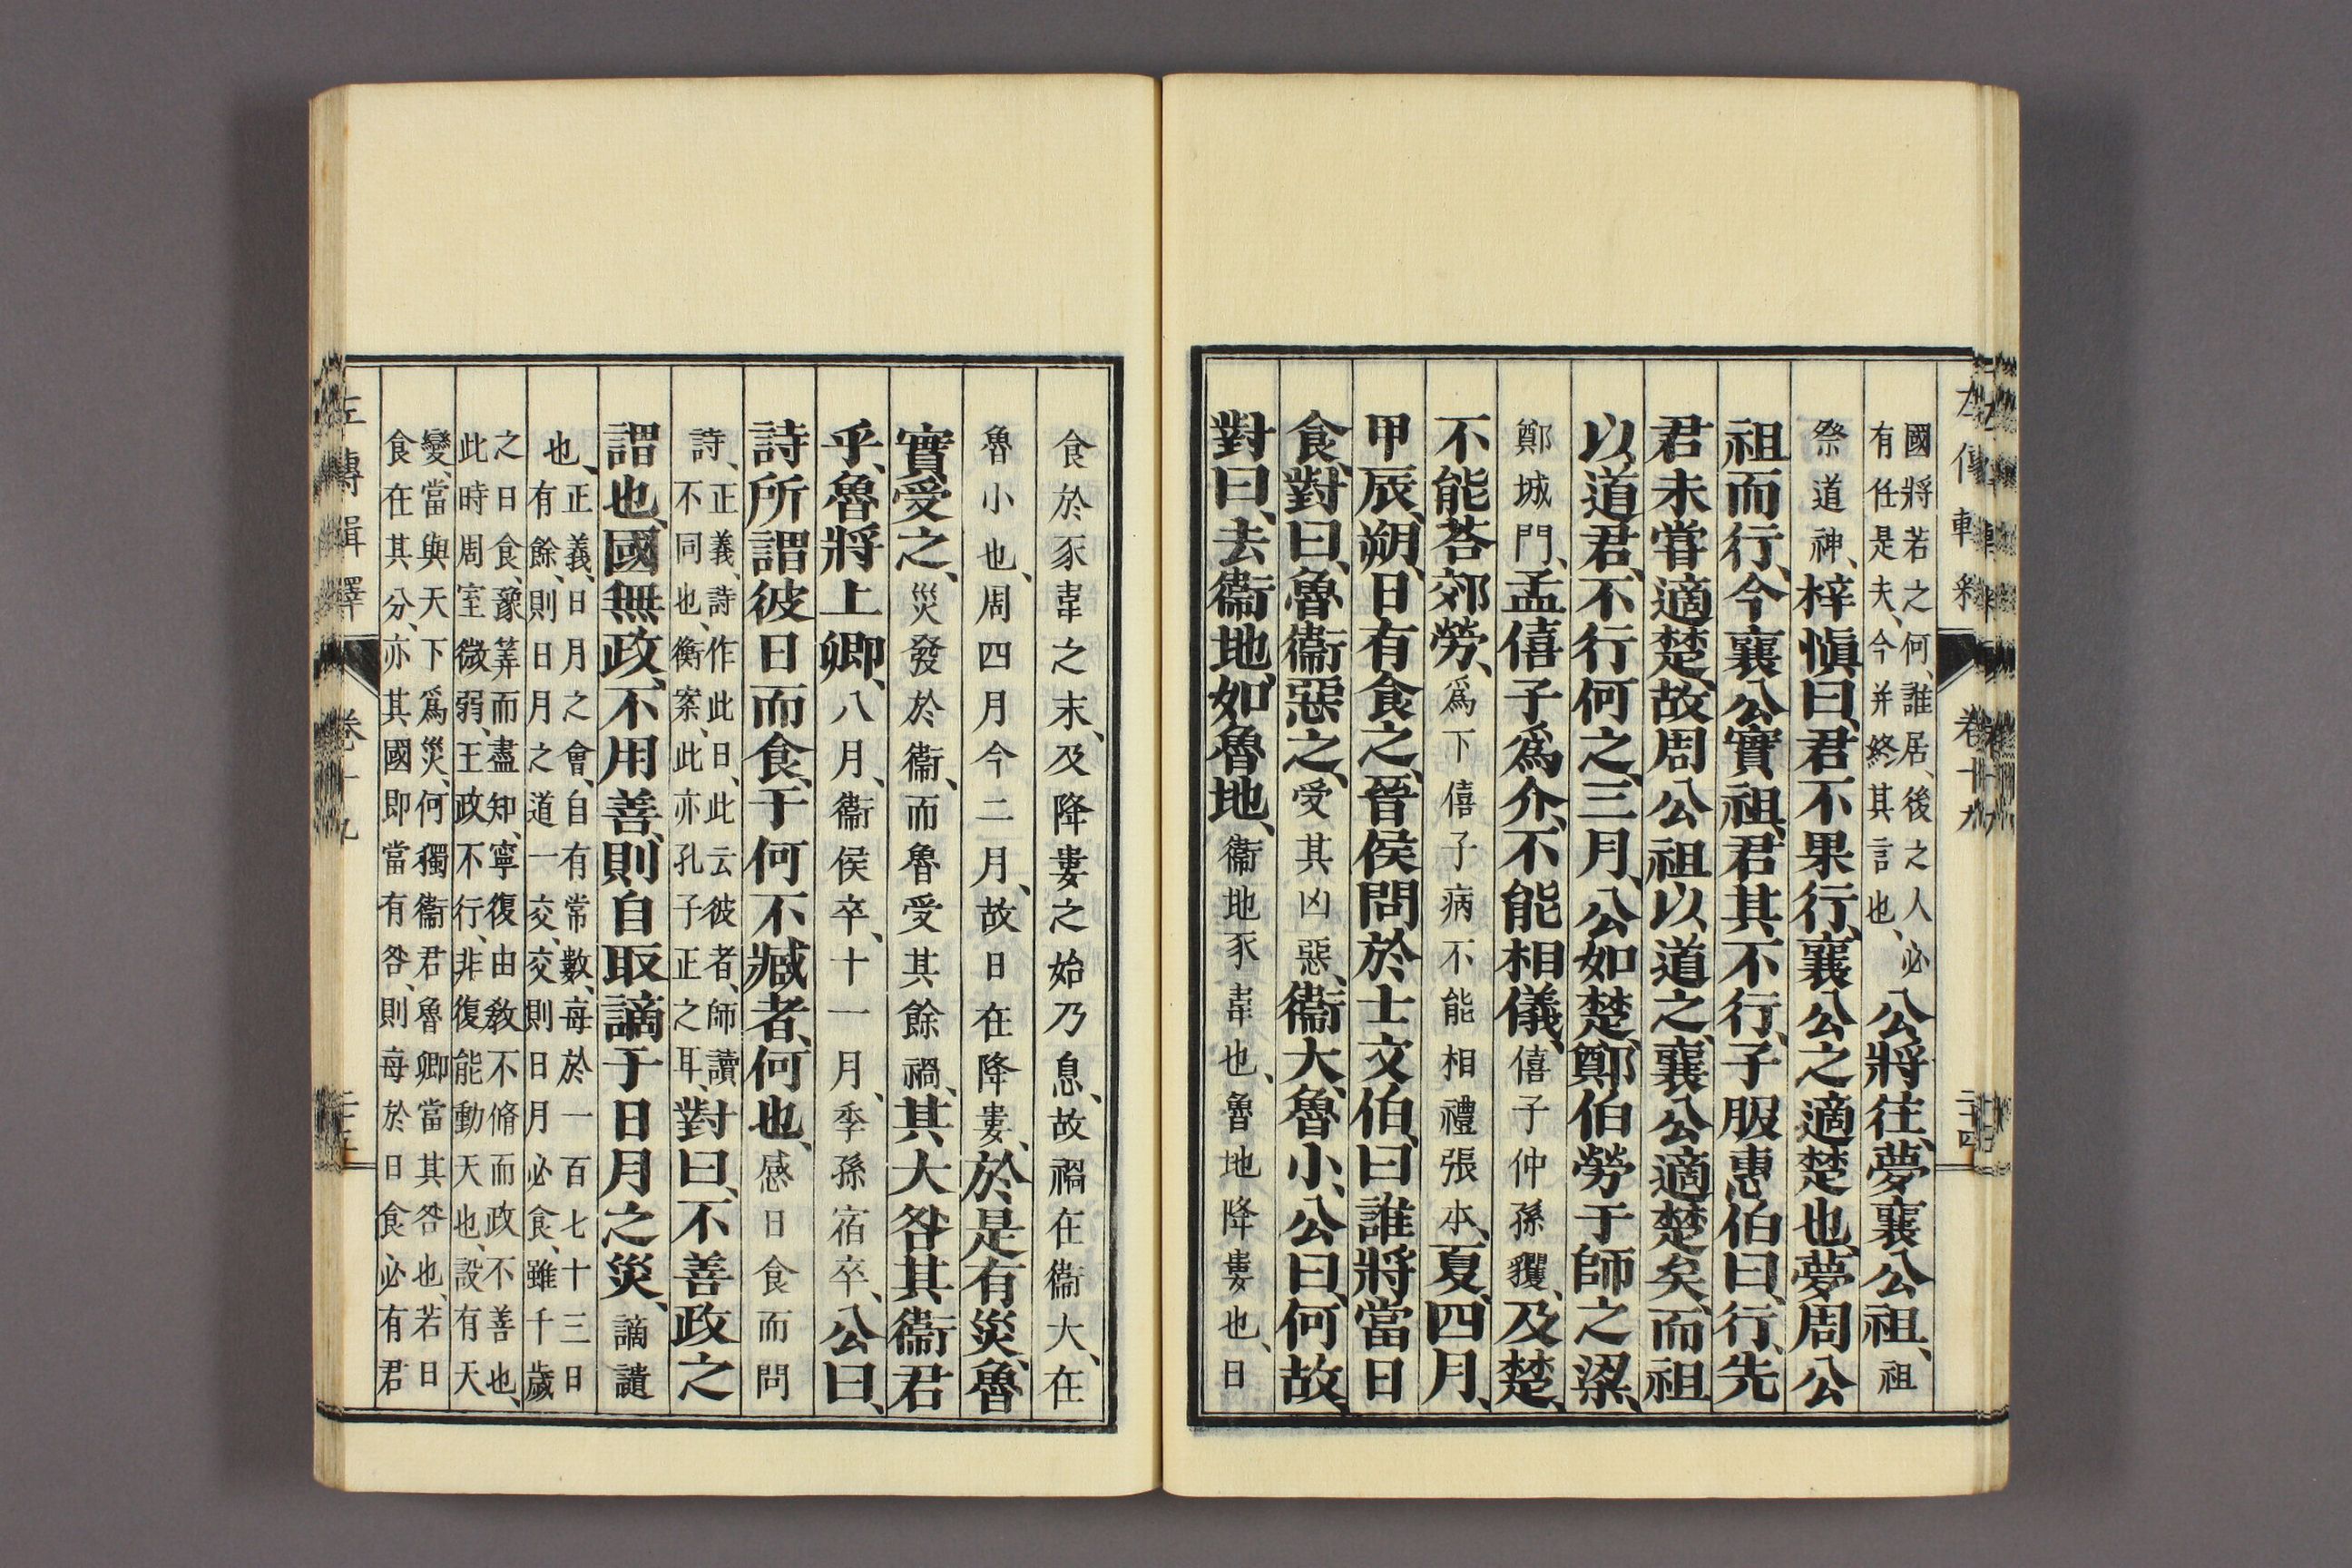 國將若之何、誰居、後之人、必
有任是夫、今并終其言也、公將往、夢襄公祖、祖
祭道神、梓愼曰、君不果行、襄公之適楚也、夢周公
祖而行、今襄公實祖、君其不行、子服惠伯曰、行、先
君未嘗適楚、故周公祖以道之、襄公適楚矣、而祖
以道君、不行何之、三月、公如楚、鄭伯勞于師之梁、
鄭城門、孟僖子爲介、不能相儀、僖子仲孫貜、及楚、
不能荅郊勞、爲下僖子病不能相禮張本、夏、四月、
甲辰、朔、日有食之、晉侯問於士文伯、曰、誰將當日
食、對曰、魯衞惡之、受其凶惡、衞大、魯小、公曰、何故、
對曰、去衞地、如魯地、衞地豕韋也、魯地降婁也、日
左傳輯釋 卷十九 二十四
食於豕韋之末、及降婁之始乃息、故禍在衞大、在
魯小也、周四月今二月、故日在降婁、於是有災、魯
實受之、災發於衞、而魯受其餘禍、其大咎其衞君
乎、魯將上卿、八月、衞侯卒、十一月、季孫宿卒、公曰、
詩所謂彼日而食、于何不臧者、何也、感日食而問
詩、正義、詩作此日、此云彼者、師讀
不同也、衡案、此亦孔子正之耳、對曰、不善政之
謂也、國無政、不用善、則自取謫于日月之災、謫譴
也、正義、日月之會、自有常數、每於一百七十三日
有餘、則日月之道一交、交則日月必食、雖千歲
之日食、豫筭而盡知、寧復由敎不脩而政不善也、
此時周室微弱、王政不行、非復能動天也、設有天
變、當與天下爲災、何獨衞君魯卿當其咎也、若日
食在其分、亦其國即當有咎、則每於日食必有君
左傳輯釋 卷十九 二十五